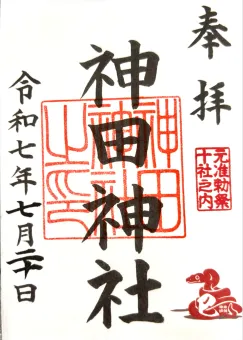 奉拝
元准勅祭
十社之内
神田神社
神田
神社
之印
令和七年七月二十日